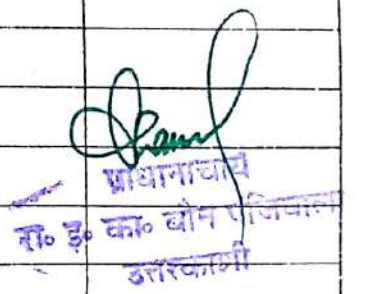 प्राधानाचार्य
रा० इ० का० बौन पंजियाला
उत्तरकाशी